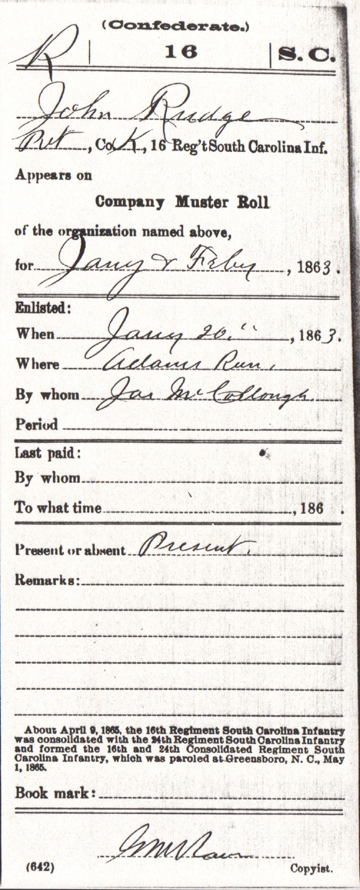 (Confederate.)
R | 16 | S.C.
John Rudge
Pvt, Co. K, 16 Reg't South Carolina Inf.
Appears on
Company Muster Roll
of the organization named above,
for Jany & Feby, 1863.
Enlisted:
When Jany 20", 1863.
Where Adams Run.
By whom Jas McCollough
Period
Last paid:
By whom
To what time , 186 .
Present or absent Present.
Remarks:
About April 9, 1865, the 16th Regiment South Carolina Infantry
was consolidated with the 24th Regiment South Carolina Infantry
and formed the 16th and 24th Consolidated Regiment South
Carolina Infantry, which was paroled at Greensboro, N. C., May
1, 1865.
Book mark:
(642) Copyist.